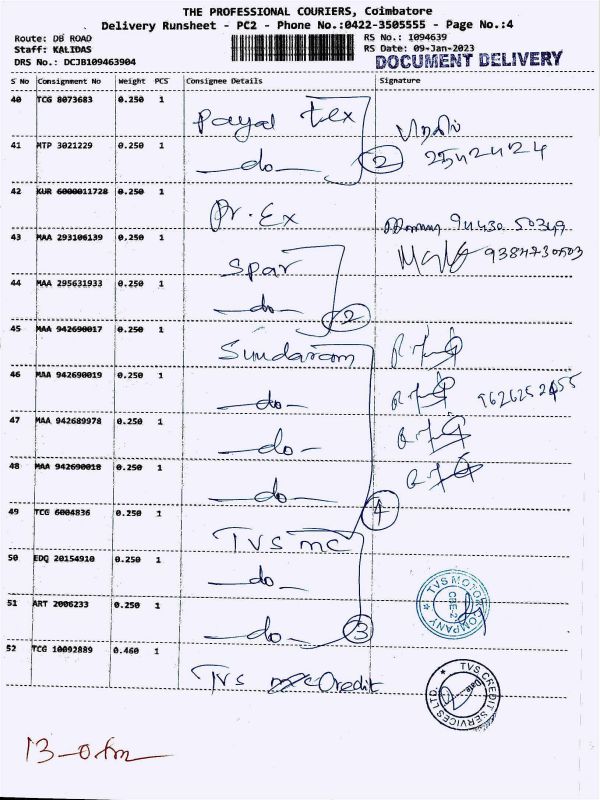 THE PROFESSIONAL COURIERS, Coimbatore
Delivery Runsheet - PC2 - Phone No.:0422-3505555 - Page No.:4
Route: DB ROAD
Staff: KALIDAS
DRS No.: DCJB109463904
RS No.: 1094639
RS Date: 09-Jan-2023
DOCUMENT DELIVERY
S No Consignment No Weight PCS Consignee Details Signature
40 TCG 8073683 0.250 1 Payal tex
41 MTP 3021229 0.250 1 -do- 2
42 KUR 6000011728 0.250 1 Pr. Ex 94430 50349
43 MAA 293106139 0.250 1 Spar
44 MAA 295631933 0.250 1 -do- 2
45 MAA 942690017 0.250 1 Sundaram
46 MAA 942690019 0.250 1 -do- 9626252455
47 MAA 942689978 0.250 1 -do-
48 MAA 942690018 0.250 1 -do- 4
49 TCG 6004836 0.250 1 TVS mc
50 EDQ 20154910 0.250 1 -do-
51 ART 2006233 0.250 1 -do- 3
TVS MOTOR COMPANY
52 TCG 10092889 0.460 1 TVS Credit
TVS CREDIT SERVICES LTD.